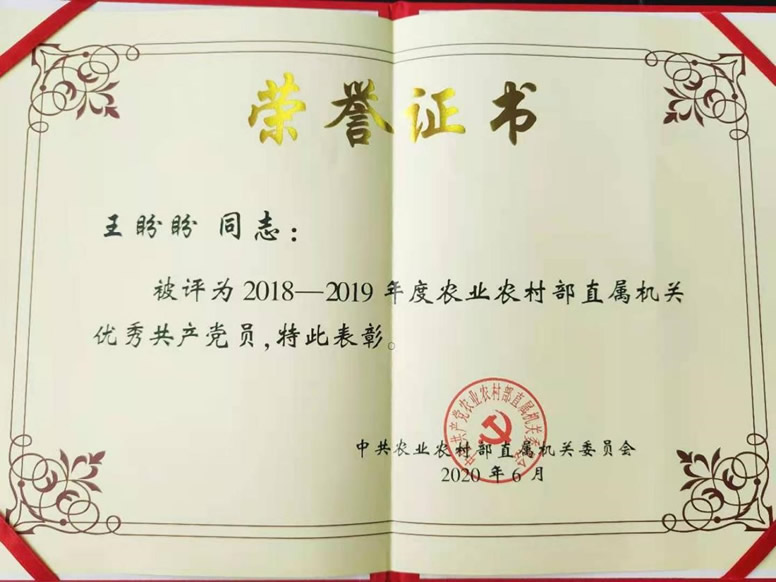 荣誉证书
王盼盼 同志：
被评为2018—2019年度农业农村部直属机关
优秀共产党员,特此表彰。
中国共产党农业农村部直属机关委员会
中共农业农村部直属机关委员会
2020年6月